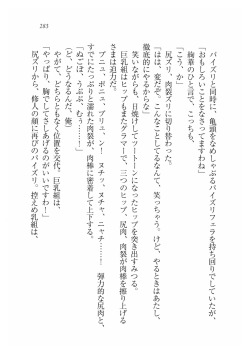 283
パイズリと同時に、亀頭をなめしゃぶるパイズリフェラを持ち回りでしていたが、
「おもしろいことをなさってますわね」
絢華のひと言で、こっちも、
「こう、か」
尻ズリ、肉裂ズリに切り替わった。
「はは、変だぞ。こんなことしてるなんて、笑っちゃう。けど、やるときは
徹底的にやるからな」
笑いながらも、日焼けしてツートーンになったヒップを突き出すみつる。
巨乳組はヒップもまたグラマーで、三つのヒップ、尻肉、肉裂が肉棒を擦り上げる
さまは迫力だ。
プニュ、ポニュ、プリュ、ンー ヌチッ、ヌチャ、ニャチ………弾力的な尻肉と、
すでにたっぷりと濡れた肉裂が、肉棒に密着して上下する。
「ぬごほ、うぶぶ、むぅ……！
（ど、どうなるんだ、俺）
やがて、どちらともなく位置を交代。巨乳組は、
「やっぱり、胸でしあげるのがいいですわ！」
尻ズリから、修人の顔に再びのパイズリ。控えめ乳組は、